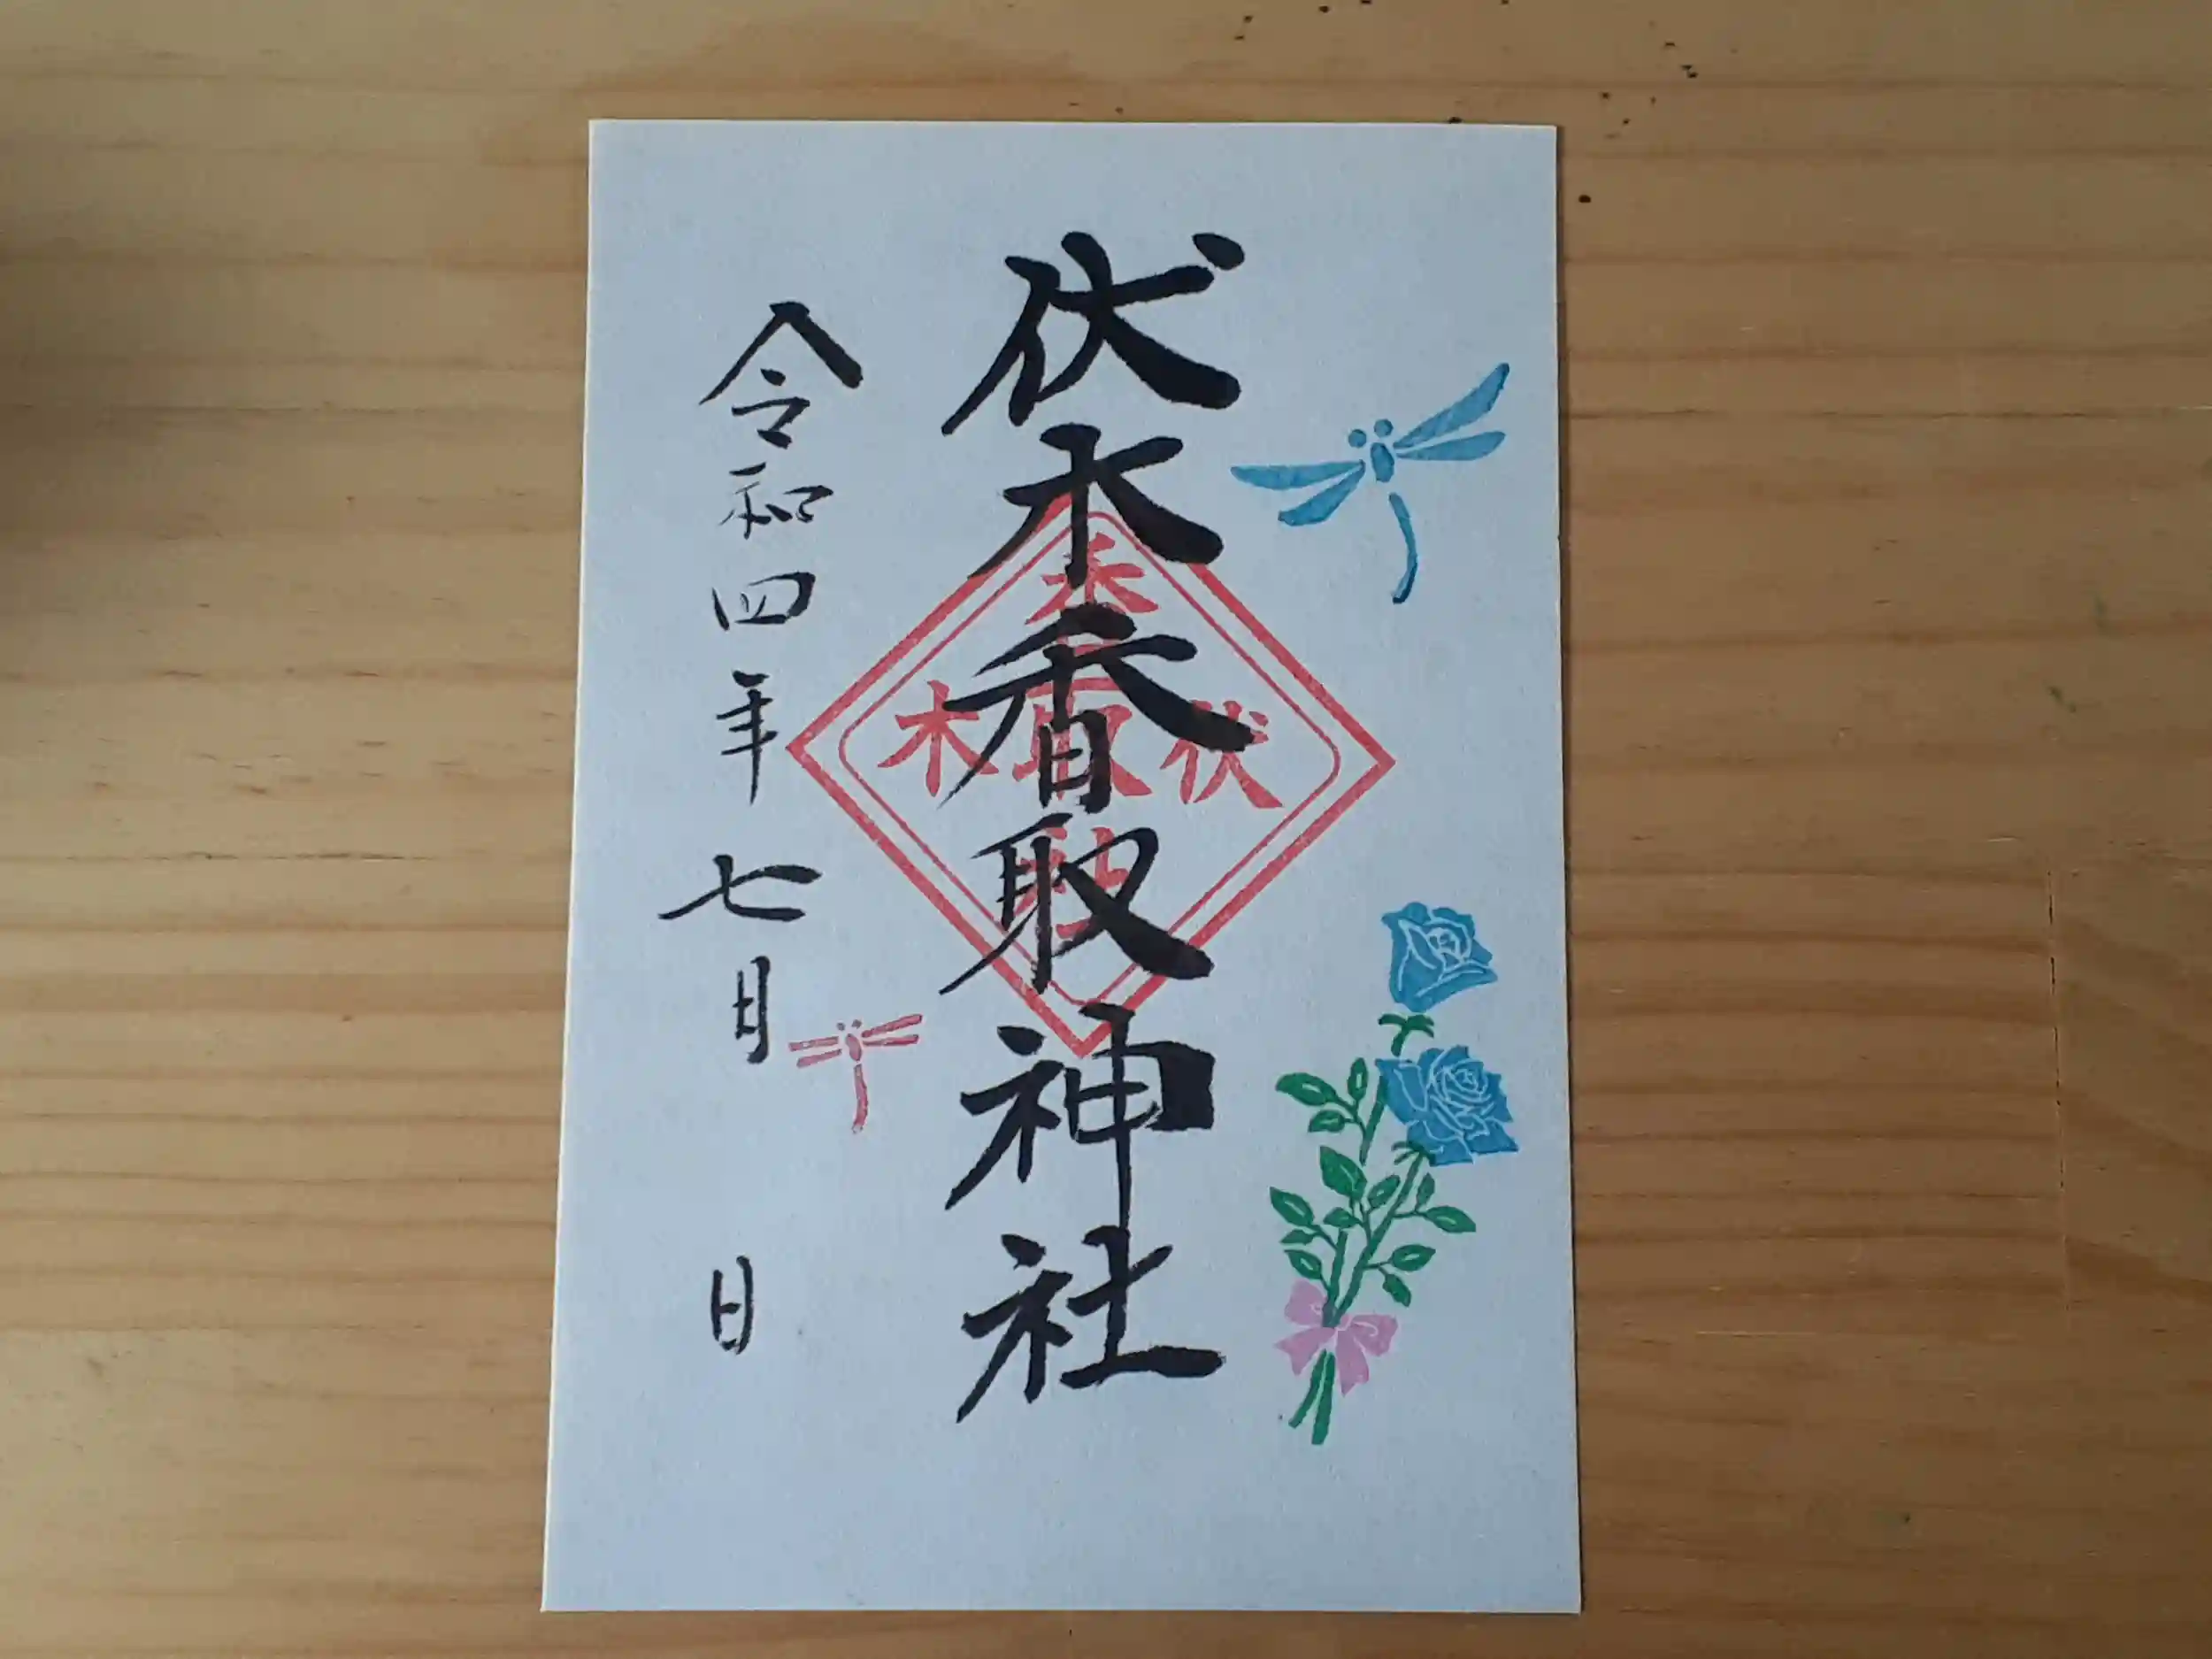 伏木香取神社
令和四年七月　日
伏
香取社
木